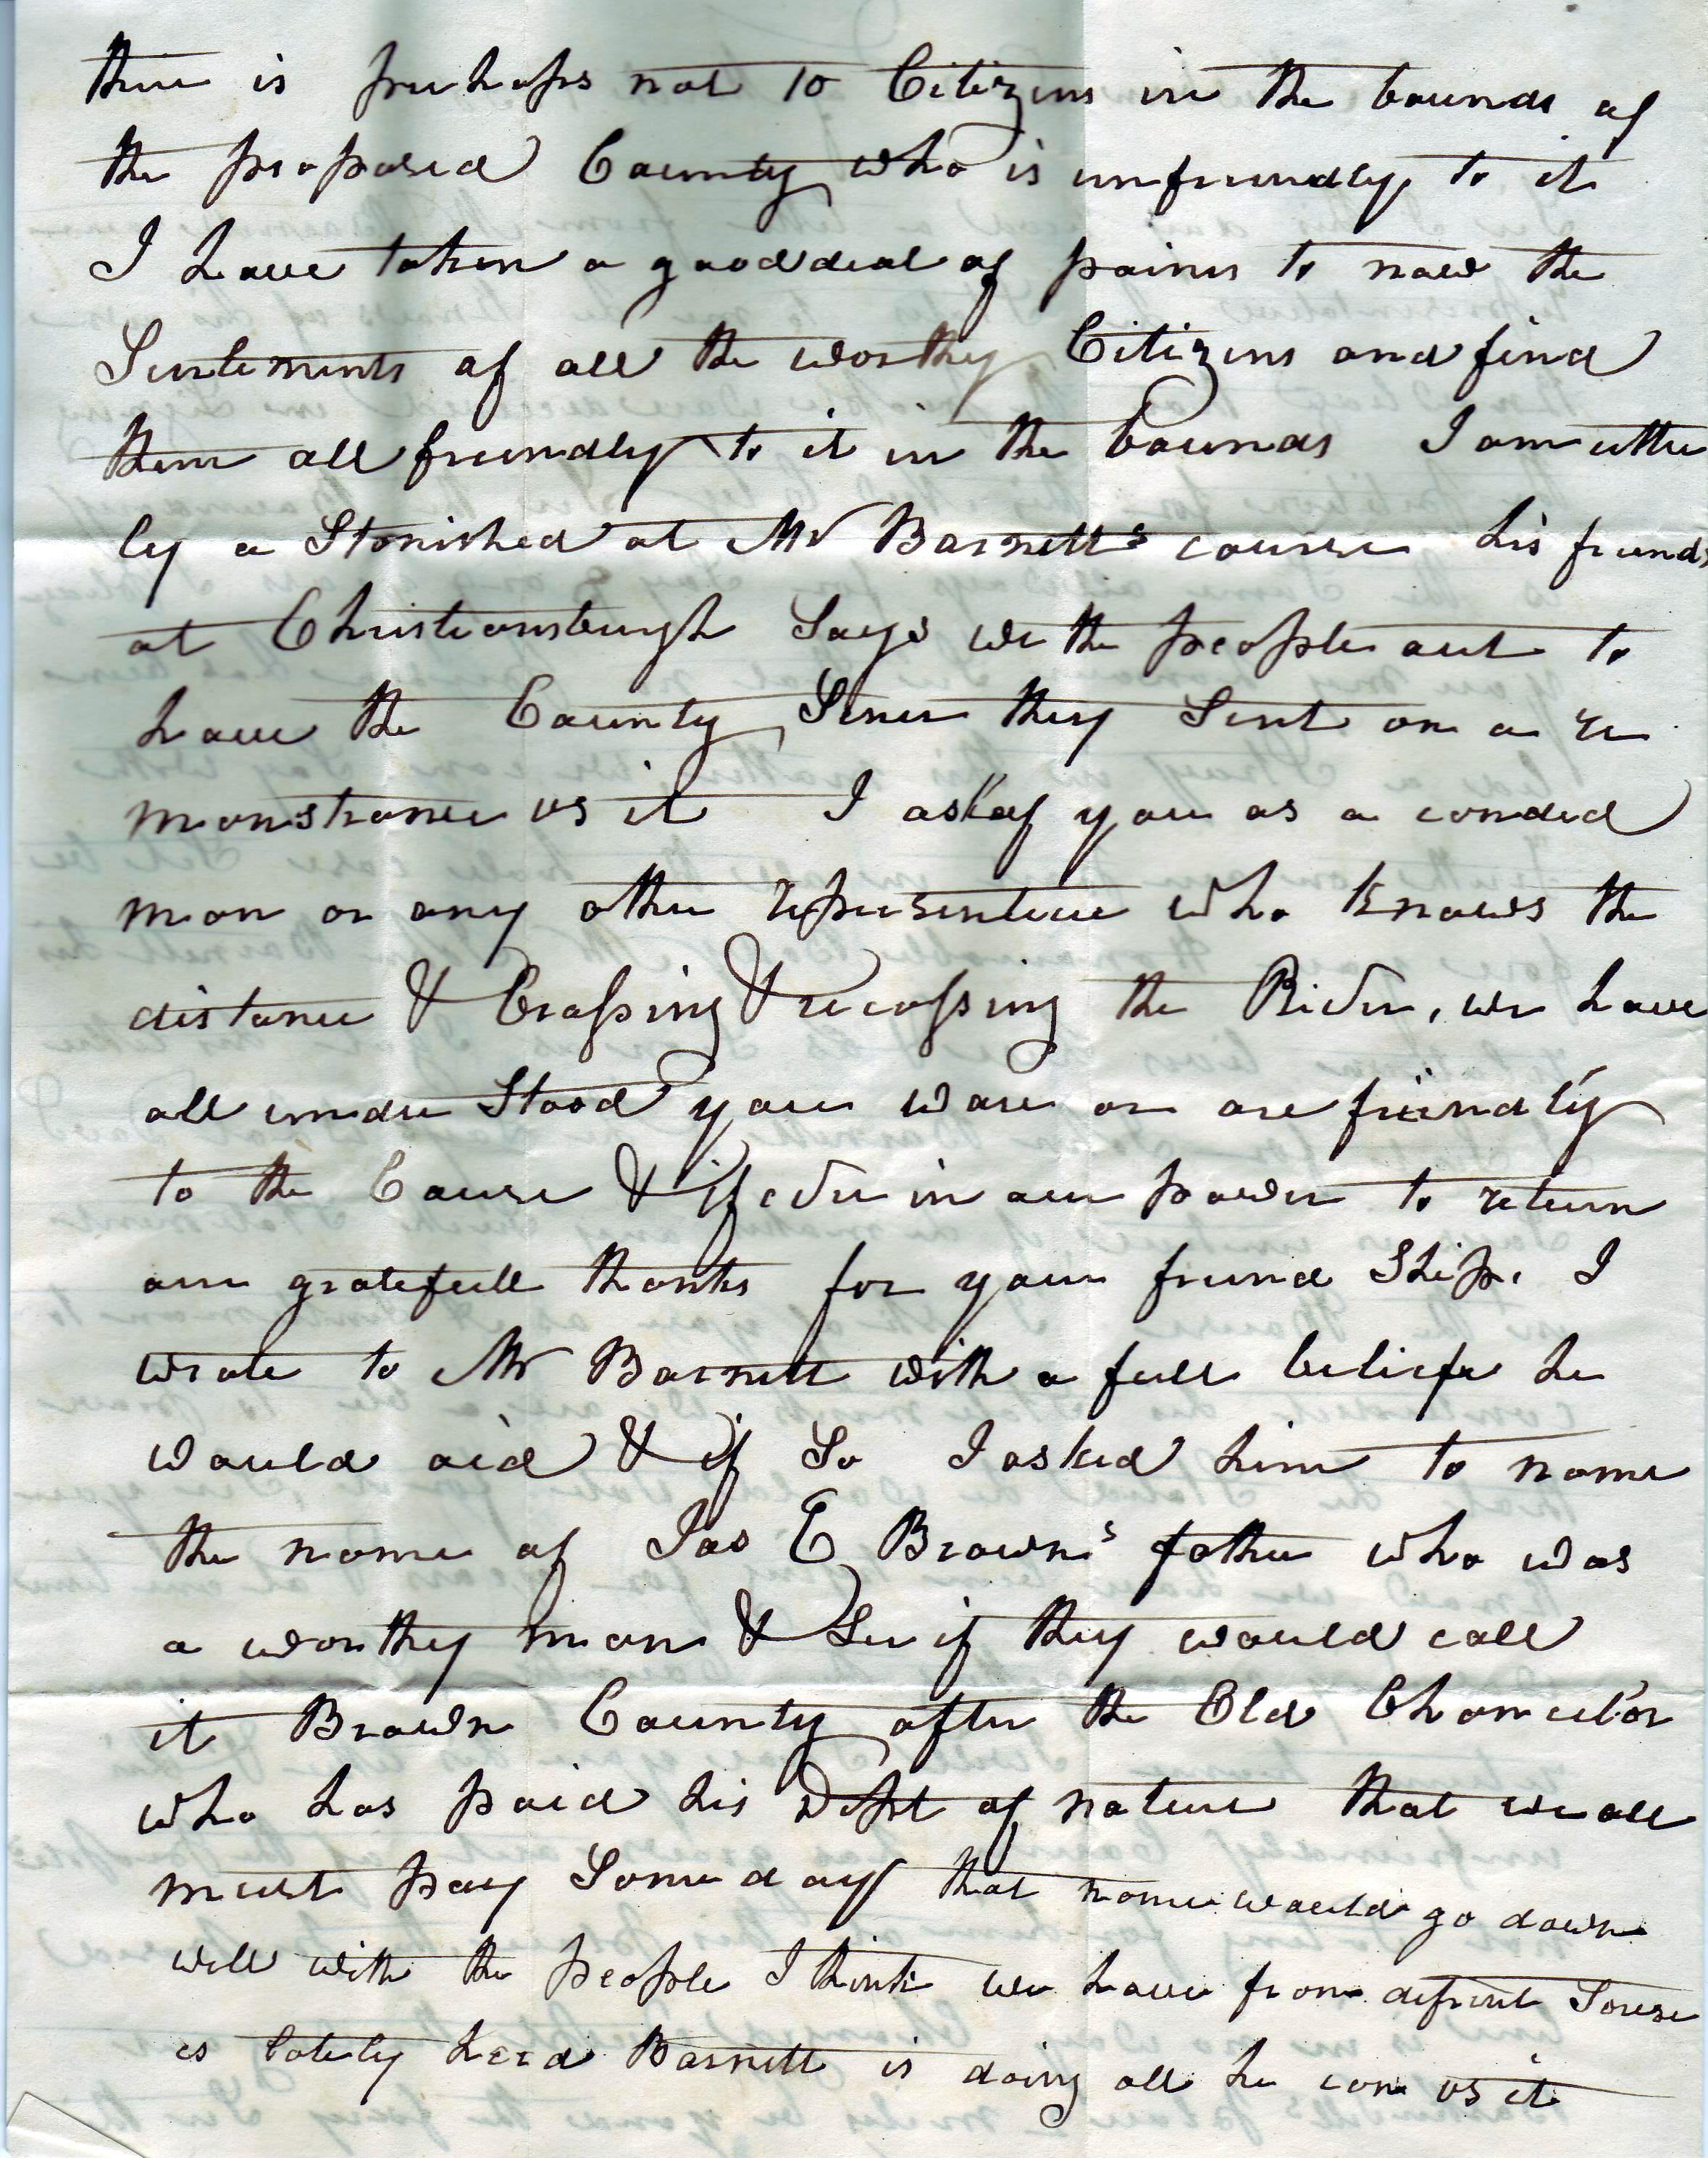 there is perhaps not 10 Citizens in the bounds of
the proposed County who is unfriendly to it
I have taken a good deal of pains to now the
Sentements of all the worthy Citizens and find
them all friendly to it in the bounds I am utter
ly a Stonished at Mr Barnett's course his friends
at Christiansburgh Says we the people aut to
have the County Since they Sent on a re
monstrance vs it I ask of you as a canded
man or any other representive who knows the
distance & Crossing & recrossing the River, we have
all under Stood you ware or are friendly
to the Cause & if ever in our power to return
our gratefull thanks for your friend Ship. I
wrote to Mr Barnett with a full beliefe he
would aid & if So I asked him to name
the name of Jas E Brown's father who was
a worthy man & See if they would call
it Brown County after the Old Chancelor
who has paid his Dept of nature that we all
must pay Some day that name would go down
well with the people I think we have from defrent Sourse
es lately herd Barnett is doing all he can vs it